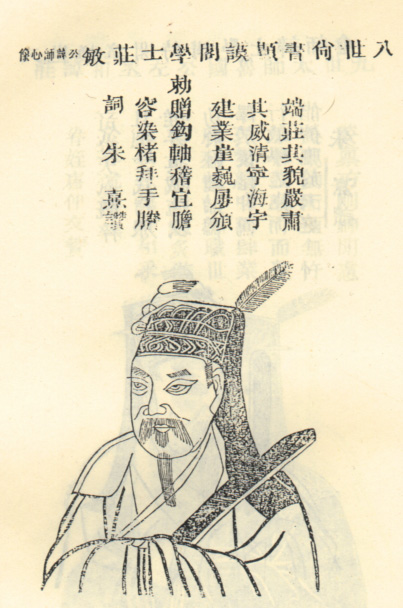 八世尚書顕謨閣學士莊敏公諱師心像
端莊其貌嚴肅
其威清寧海宇
建業崖巍屢頒
勅贈鈞軸稽宜瞻
容染楮拜手謄
詞 朱熹讚